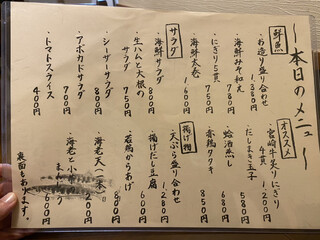 〜本日のメニュー〜
鮮魚
・お造り盛り合わせ 1,380
・海鮮みそ和え 780
・にぎり5貫 750
・海鮮太巻 1,600
サラダ
・海鮮サラダ 850
・生ハムと大根のサラダ 750
・シーザーサラダ 800
・アボカドサラダ 700
・トマトスライス 400円
オススメ
・宮崎牛炙りにぎり 4貫 1,200
・だしまき玉子 580
・蛤酒蒸し 680
・赤鶏タタキ 850
揚げ物
・天ぷら盛り合わせ 1,280
・揚げだし豆腐 600
・若鶏からあげ 800
・海老天(一本) 200
・海老と小
裏面もあります。